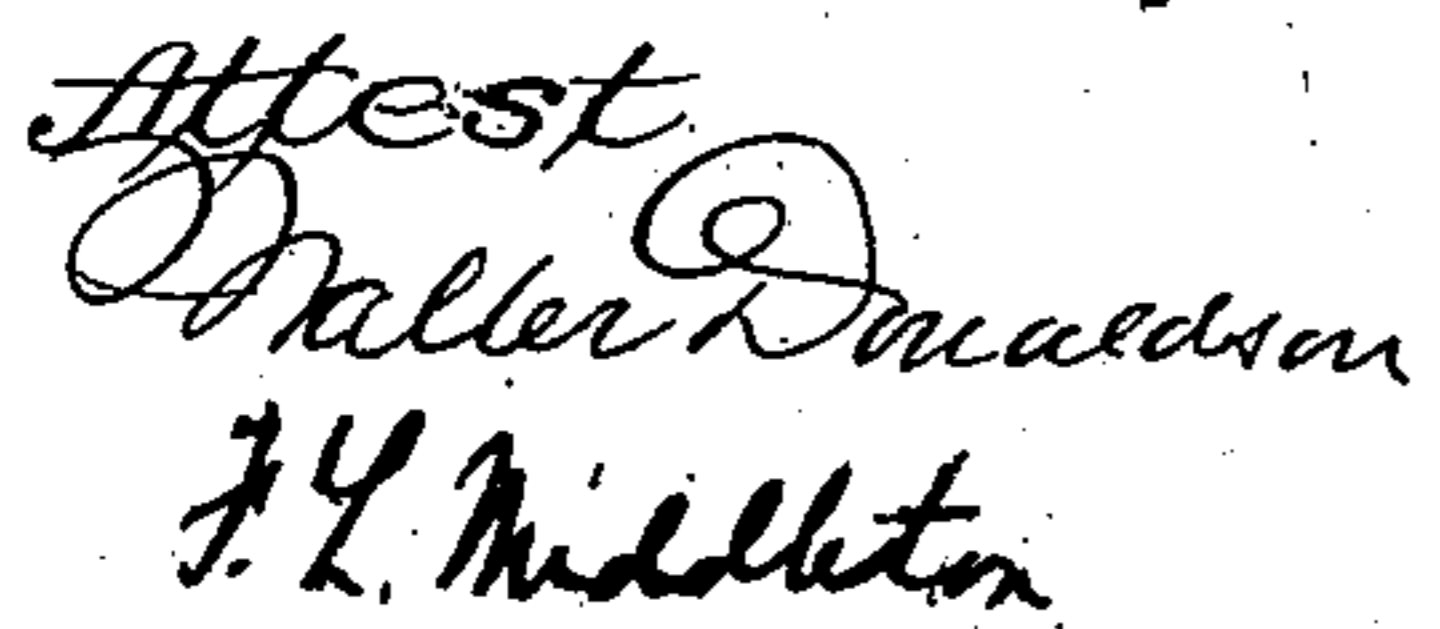 Attest
Walter Donaldson
F. L. Middleton